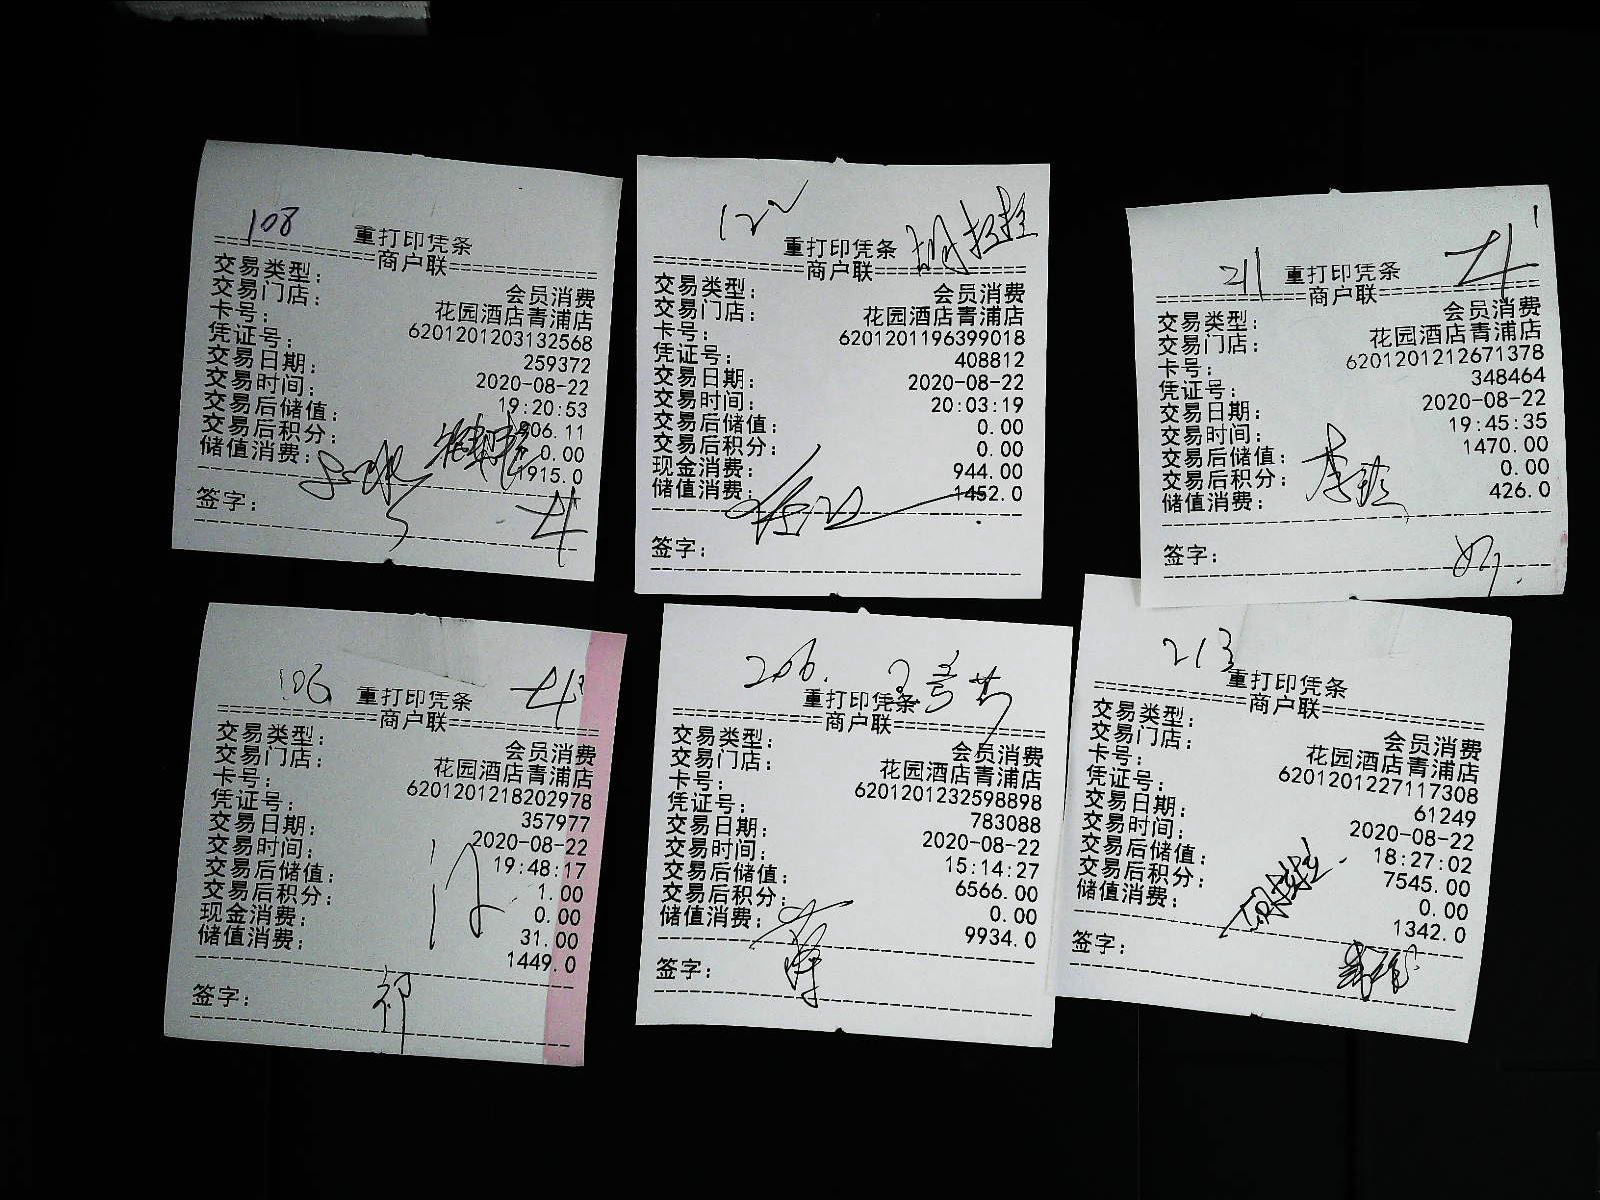 108
重打印凭条
商户联
交易类型： 会员消费
交易门店： 花园酒店青浦店
卡号： 6201201203132568
凭证号： 259372
交易日期： 2020-08-22
交易时间： 19:20:53
交易后储值： 906.11
交易后积分： 0.00
储值消费： 1915.0
签字：
122
重打印凭条
商户联
交易类型： 会员消费
交易门店： 花园酒店青浦店
卡号： 6201201196399018
凭证号： 408812
交易日期： 2020-08-22
交易时间： 20:03:19
交易后储值： 0.00
交易后积分： 0.00
现金消费： 944.00
储值消费： 1452.0
签字：
211
重打印凭条
商户联
交易类型： 会员消费
交易门店： 花园酒店青浦店
卡号： 6201201212671378
凭证号： 348464
交易日期： 2020-08-22
交易时间： 19:45:35
交易后储值： 1470.00
交易后积分： 0.00
储值消费： 426.0
签字：
106
重打印凭条
商户联
交易类型： 会员消费
交易门店： 花园酒店青浦店
卡号： 6201201218202978
凭证号： 357977
交易日期： 2020-08-22
交易时间： 19:48:17
交易后储值： 1.00
交易后积分： 0.00
现金消费： 31.00
储值消费： 1449.0
签字： 祁
206.
重打印凭条
商户联
交易类型： 会员消费
交易门店： 花园酒店青浦店
卡号： 6201201232598898
凭证号： 783088
交易日期： 2020-08-22
交易时间： 15:14:27
交易后储值： 6566.00
交易后积分： 0.00
储值消费： 9934.0
签字：
213
重打印凭条
商户联
交易类型： 会员消费
交易门店： 花园酒店青浦店
卡号： 6201201227117308
凭证号： 61249
交易日期： 2020-08-22
交易时间： 18:27:02
交易后储值： 7545.00
交易后积分： 0.00
储值消费： 1342.0
签字：